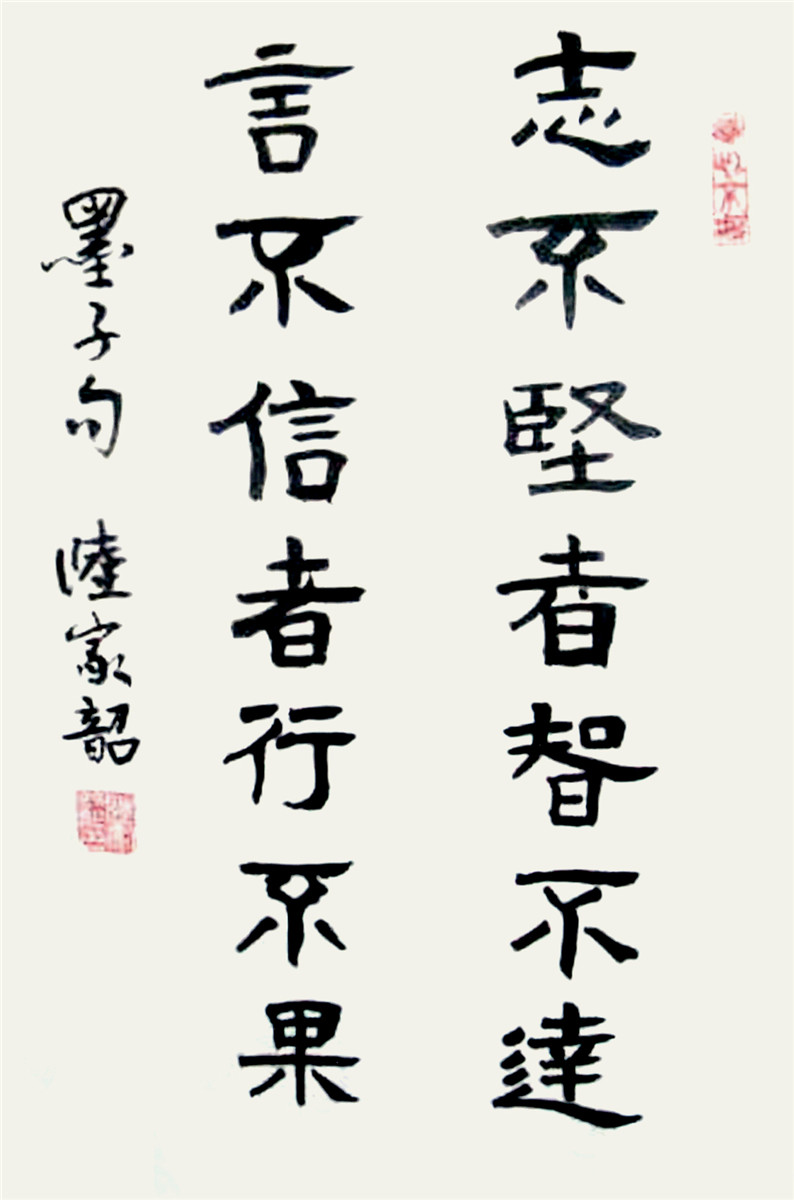 志不堅者智不達
言不信者行不果
墨子句 陸家韶